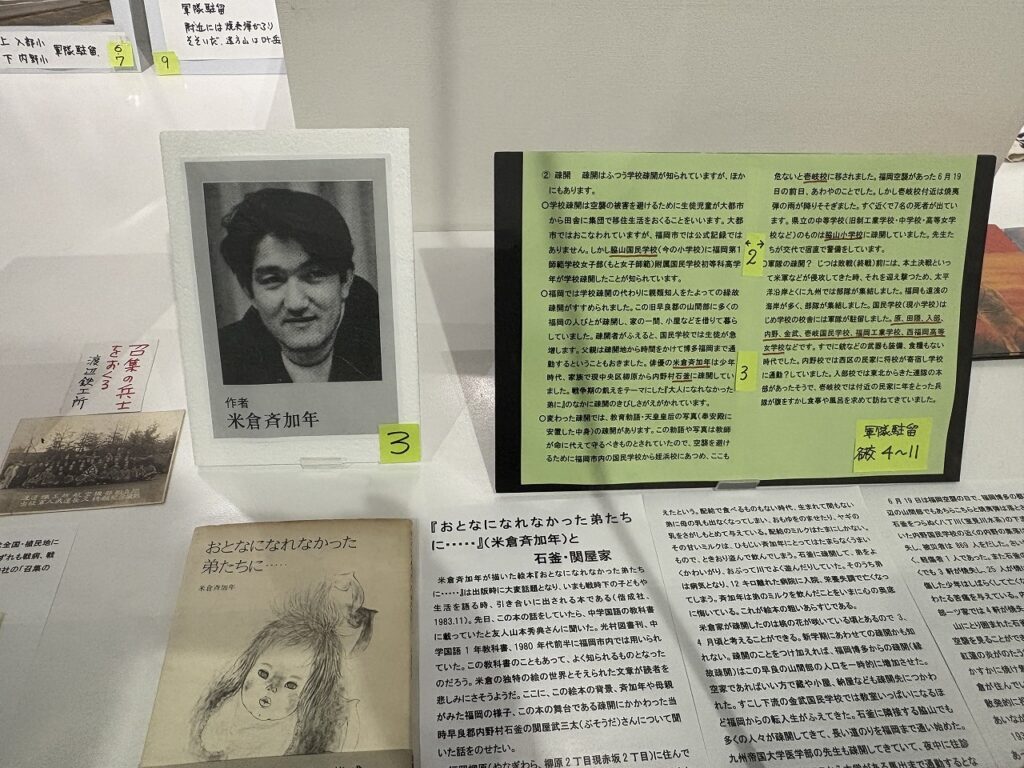 上 入部小 軍隊駐留.
下 内野小
6
7
軍隊駐留
9
召集の兵士
をおくる
渡辺鉄工所
作者
米倉斉加年
3
② 疎開 疎開はふつう学校疎開が知られていますが、ほか
にもあります。
○学校疎開は空襲の被害を避けるために生徒児童が大都市
から田舎に集団で移住生活をおくることをいいます。大都
市ではおこなわれていますが、福岡市では公式記録では
ありません。しかし脇山国民学校(今の小学校)に福岡第1
師範学校女子部(もと女子師範)附属国民学校初等科高学
年が学校疎開したことが知られています。
○福岡では学校疎開の代わりに親類知人をたよっての縁故
疎開がすすめられました。この旧早良郡の山間部に多くの
福岡の人びとが疎開し、家の一間、小屋などを借りて暮ら
していました。疎開者がふえると、国民学校では生徒が急
増します。父親は疎開地から時間をかけて博多福岡まで通
勤するということもおきました。俳優の米倉斉加年は少年
時代、家族で現中央区柳原から内野村石釜に疎開してい
ました。戦争期の飢えをテーマにした『大人になれなかった
弟に』のなかに疎開のきびしさがえがかれています。
○変わった疎開では、教育勅語・天皇皇后の写真(奉安殿に
安置した中身)の疎開があります。この勅語や写真は教師
が命に代えて守るべきものとされていたので、空襲を避け
るために福岡市内の国民学校から姪浜校にあつめ、ここも
危ないと壱岐校に移されました。福岡空襲があった6月19
日の前日、あわやのことでした。しかし壱岐校付近は焼夷
弾の雨が降りそそぎました。すぐ近くで7名の死者が出てい
ます。県立の中等学校(旧制工業学校・中学校・高等女学
校など)のものは脇山小学校に疎開していました。先生た
ちが交代で宿直で警備をしています。
○軍隊の疎開? じつは敗戦(終戦)前には、本土決戦といっ
て米軍などが侵攻してきた時、それを迎え撃つため、太平
洋沿岸とくに九州では部隊が集結しました。福岡も遠浅の
海岸が多く、部隊が集結しました。国民学校(現小学校)は
じめ学校の校舎には軍隊が駐留しました。原、田隈、入部、
内野、金武、壱岐国民学校、福岡工業学校、西福岡高等
女学校などです。すでに銃などの武器も装備、食糧もない
時代でした。内野校では西区の民家に将校が寄宿し学校
に通勤?していました。入部校では東北からきた連隊の本
部があったそうで、壱岐校では付近の民家に年をとった兵
隊が腹をすかし食事や風呂を求めて訪ねてきていました。
2
3
軍隊駐留
各校 4〜11
おとなになれなかった
弟たちに……
米倉斉加年
『おとなになれなかった弟たち
に……』(米倉斉加年)と
石釜・関屋家
米倉斉加年が描いた絵本『おとなになれなかった弟たち
に……』は出版時に大変話題となり、いまも戦時下の子どもや
生活を語る時、引き合いに出される本である(偕成社、
1983.11)。先日、この本の話をしていたら、中学国語の教科書
に載っていたと友人山本秀典さんに聞いた。光村図書刊、中
学国語1年教科書、1980年代前半に福岡市内では用いられ
ていた。この教科書のこともあって、よく知られるものとなった
のだろう。米倉の独特の絵の世界とそえられた文章が読者を
悲しみにさそうようだ。ここに、この絵本の背景、斉加年や母親
がみた福岡の様子、この本の舞台である疎開にかかわった当
時早良郡内野村石釜の関屋武三太(ぶそうだ)さんについて聞
いた話をのせたい。
えたという。配給で食べるものもない時代、生まれて間もない
弟に母の乳も出なくなってしまい、おもゆをのませたり、ヤギの
乳をさがしもとめて与えている。配給のミルクはたまにしかない。
その甘いミルクは、ひもじい斉加年にとってはたまらなくうまい
もので、ときおり盗んで飲んでしまう。石釜に疎開して、弟をよ
くかわいがり、おぶって川でよく遊んだりしていた。そのうち弟
は病気となり、12キロ離れた病院に入院、栄養失調で亡くなっ
てしまう。斉加年は弟のミルクを飲んだことをいまに心の奥底
に悔いている。これが絵本の粗いあらすじである。
米倉家が疎開したのは桃の花が咲いている頃とあるので3、
4月頃と考えることができる。新学期にあわせての疎開かも知
れない。疎開のことをつけ加えれば、福岡博多からの疎開(縁
故疎開)はこの早良の山間部の人口を一時的に増加させた。
空家であればいい方で蔵や小屋、納屋なども疎開先につかわ
れた。すこし下流の金武国民学校では教室いっぱいになるほ
ど福岡からの転入生がふえてきた。石釜に隣接する脇山でも
多くの人々が疎開してきて、長い道のりを福岡まで通い始めた。
九州帝国大学医学部の先生も疎開してきていて、夜中に往診